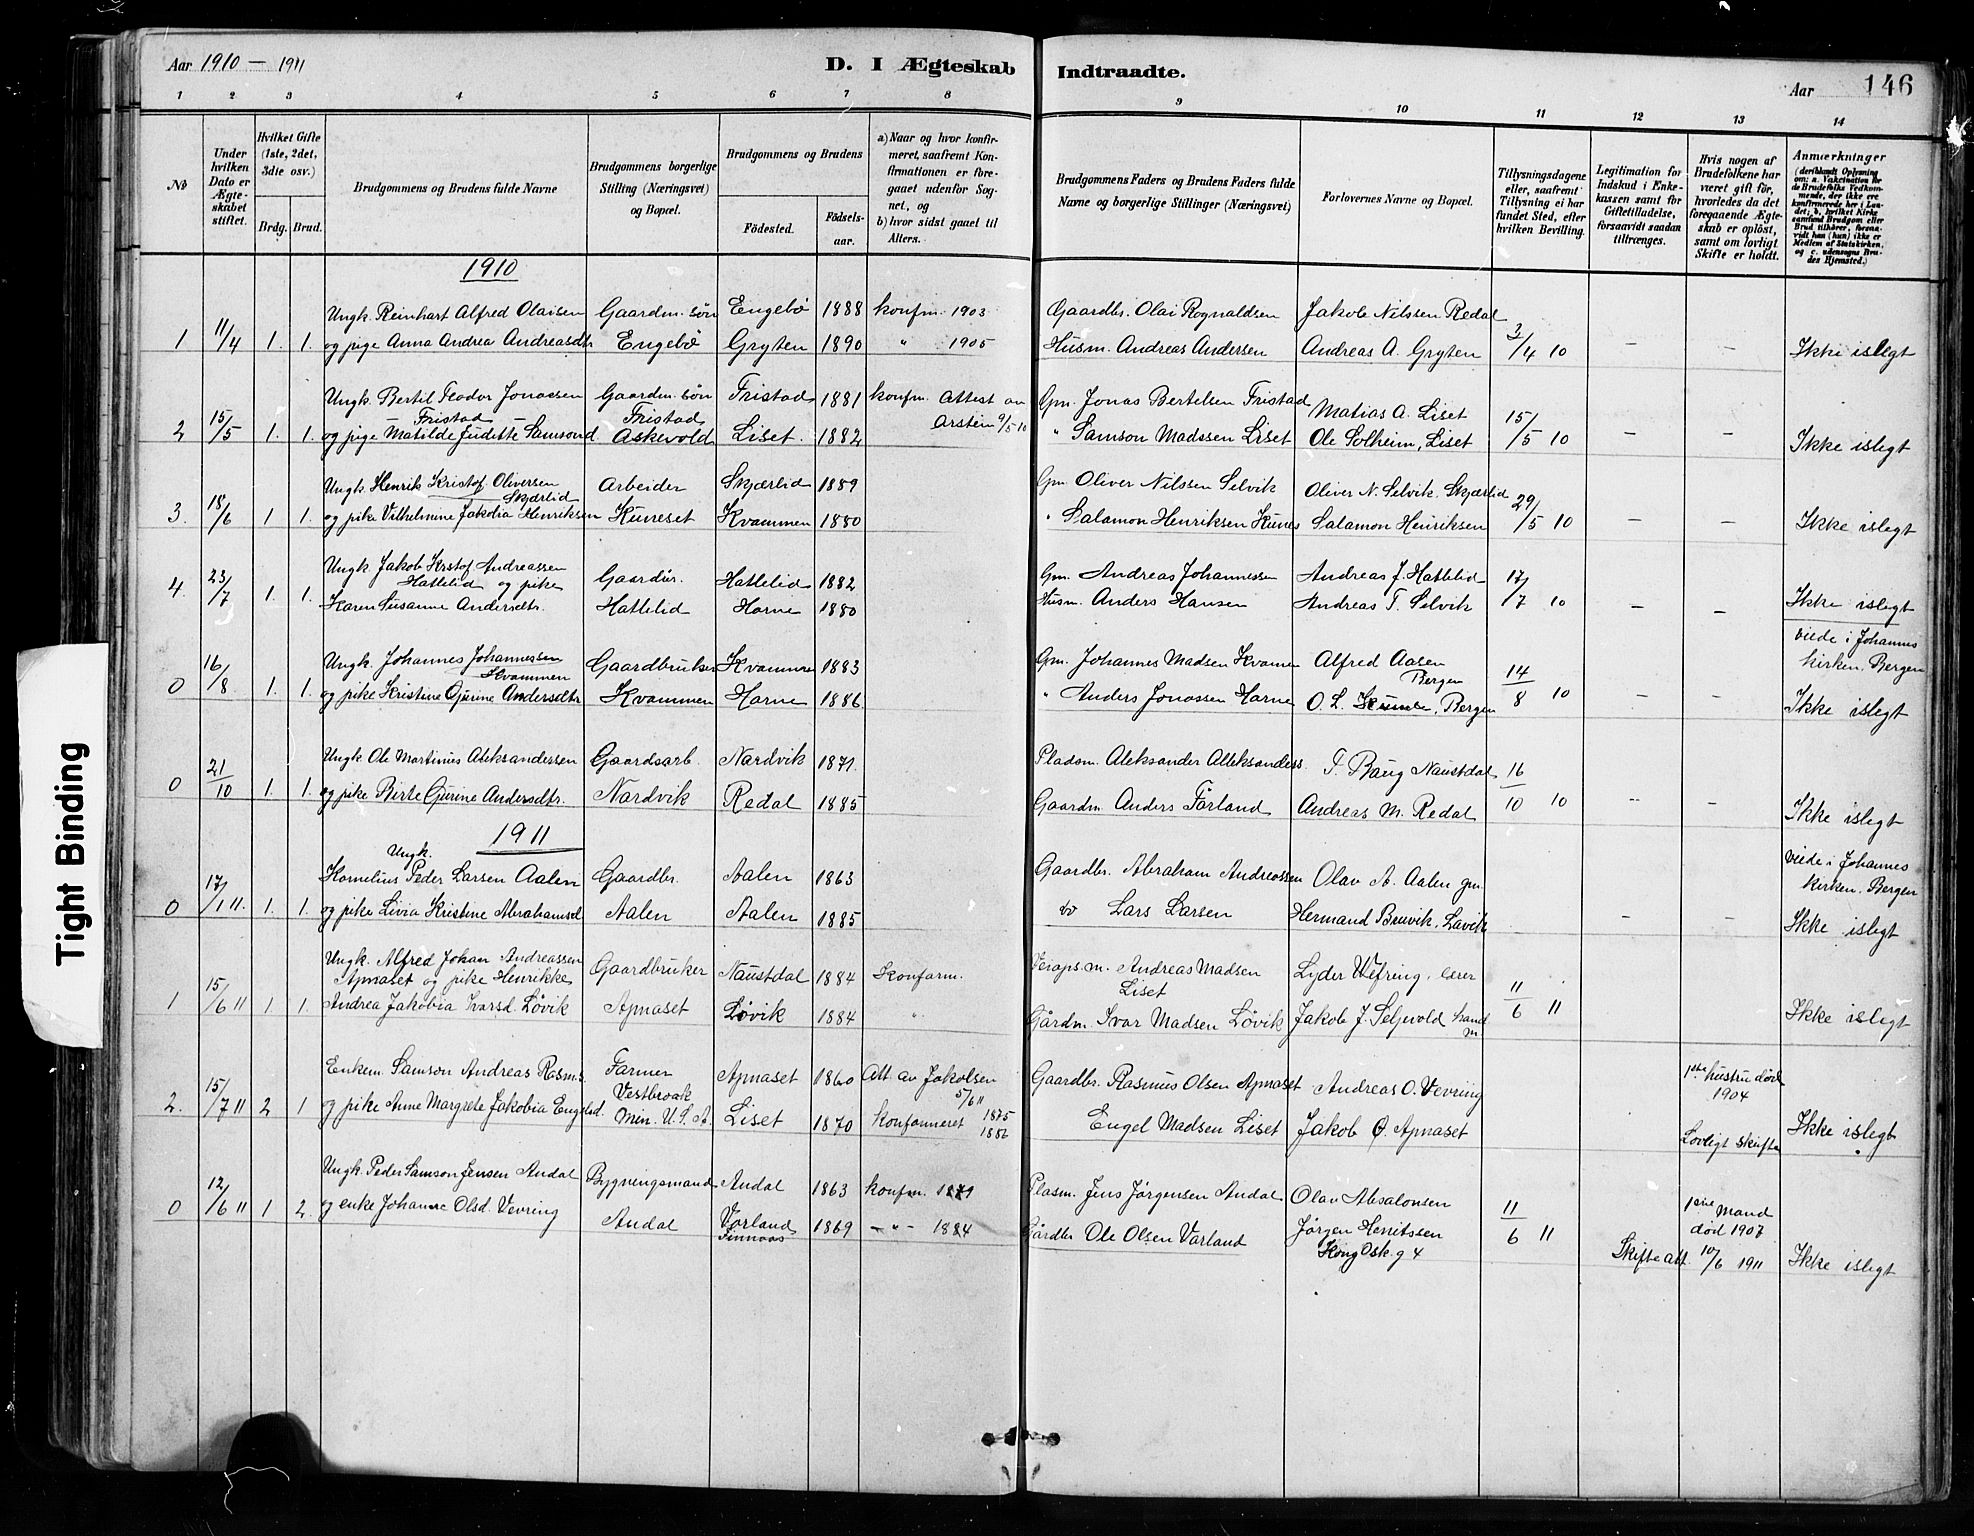 Aar 1910 — 1911
D. I Ægteskab Indtraadte.
Aar 146
1 2 3 4 5 6 7 8 9 10 11 12 13 14
No
Under hvilken Dato er Ægteskabet stiftet.
Hvilket Gifte (1ste, 2det, 3die osv.)
Brdg. Brud.
Brudgommens og Brudens fulde Navne
Brudgommens borgerlige Stilling (Næringsvei) og Bopæl.
Brudgommens og Brudens
Födested. Födsels-aar.
a) Naar og hvor konfirmeret, saafremt Konfirmationen er foregaaet udenfor Sognet, og
b) hvor sidst gaaet til Alters.
Brudgommens Faders og Brudens Faders fulde Navne og borgerlige Stillinger (Næringsvei)
Forlovernes Navne og Bopæl.
Tillysningsdagene eller, saafremt Tillysning ei har fundet Sted, efter hvilken Bevilling.
Legitimation for Indskud i Enkekassen samt for Giftetilladelse, forsaavidt saadan tiltrænges.
Hvis nogen af Brudefolkene har været gift før, hvorledes da det foregaaende Ægteskab er opløst, samt om lovligt Skifte er holdt.
Anmærkninger (deriblandt Oplysning om: a. Vakcination for de Brudefolks Vedkommende, der ikke ere konfirmerede her i Landet; b. hvilket Kirkesamfund Brudgom eller Brud tilhører, forsaavidt han (hun) ikke er Medlem af Statskirken, og c. udensogns Brudes Hjemsted.)
1910
Ungk. Reinhart Alfred Olaisen Gaardm. søn Engebö 1888 konfm. 1903 Gaardbr. Olai Rognaldsen Jakob Nilssen Redal
1 11/4 1. 1. og pige Anna Andrea Andreasdtr Engebö Gryten 1890 " 1905 Husm. Andreas Andersen Andreas A. Gryten 3/4 10 — — Ikke islegt
Ungk. Bertel Teodor Jonassen Gaardm. søn Fristad 1881 konfm. Attest av Gm. Jonas Bertelsen Fristad Matias A. Liset
Fristad Fristad Arstein 9/5 10
2 15/5 1. 1. og pige Matilde Judette Samsond. Askevold Liset. 1882 " Samson Madssen Liset Ole Solheim, Liset 15/5 10 — — Ikke islegt
Ungk. Henrik Kristof Oliversen Arbeider Skjærlid 1889 Gm Oliver Nilssen Selvik Oliver N. Selvik. Skjærlid
Skjærlid
3. 18/6 1 1. og pike Vilhelmine Jakobia Henriksen Kuneset Kvammen 1880 " Salamon Henriksen Kunes Salamon Henriksen 29/5 10 — — Ikke islegt
Ungk. Jakob Krstof Andreassen Gaardbr. Hattelid 1882 Gm. Andreas Johannessen Andreas J. Hattelid
4. 23/7 1. 1. Hattelid og pike
Karen Susanne Andersdtr. Hattelid Horne 1880 Husm. Anders Hansen Andreas T. Selvik 17/7 10 — — Ikke islegt
Ungk. Johannes Johannessen Gaardbruker Kvammen 1883 Gm. Johannes Madsen Kvamen Alfred Aasen viede i Johannes
Kvammen Bergen kirken, Bergen
0 16/8 1. 1. og pike Kristine Gurine Andersdtr Kvammen Horne 1886. " Anders Jonassen Horne O. L. Bergen 14/8 10 — — Ikke islegt
Ungk. Ole Martinus Aleksandersen Gaardsarb. Nordvik 1871. Pladsm. Aleksander Alleksanders. P. Naustdal
0 21/10 1. 1. og pike Birte Gurine Andersdtr. Nordvik Redal 1885 Gaardm. Anders Förland Andreas M. Redal 16/10 10 -- — Ikke islegt
1911
Ungk.
Kornelius Peder Larsen Aalen Gaardbr. Aalen 1863 Gaardbr. Abraham Andreassen Olav A. Aalen gm. viede i Johannes
kirken, Bergen
0 17/1 11. 1. 1. og pike Livia Kristine Abrahamsd Aalen Aalen 1885 do Lars Larsen Hermand Bruvik, Lavik - — Ikke islegt
Ungk. Alfred Johan Andreassen Gaardbruker Naustdal 1884 konfarm. Andreas Madsen Lyder Wefring, lærer
Apnaset og pike Henrikke Liset
1 15/6 11 1. 1. Andrea Jakobia Ivarsd. Løvik Apnaset Løvik 1884 " Gårdm. Ivar Madsen Løvik Jakob J. Seljevold handm 11/6 11 Ikke islegt
Enkem. Samson Andreas Rasm.s. Farmer Apnaset 1860 Att. av Jakobsen Gaardbr. Rasmus Olsen Apnaset Andreas O. Vevring 1ste hustru død
Vestbroak 5/6 11 1904
2. 15/7 11 2 1 og pike Anne Margrete Jakobia Engelsd. Min. U.S.A. Liset 1870 konfarmeret 1875 1886 Engel Madsen Liset Jakob O. Apnaset Lovligt skifte Ikke islegt
Ungk. Peder Samson Jensen Andal Bygningsmand Andal 1863 konfm. 1879 Plasm. Jens Jørgensen Andal Olav Absalonsen 1ene mand
død 1907
0 12/6 11 1 2. og enke Johanne Olsd. Vevring Andal Vorland 1869 —"— 1884 Gårdbr Ole Olsen Varland Jørgen Henitssen 11/6 11
Finnaas Kong Osk. g 4 Skifte att. 10/6 1911 Ikke islegt
Tight Binding